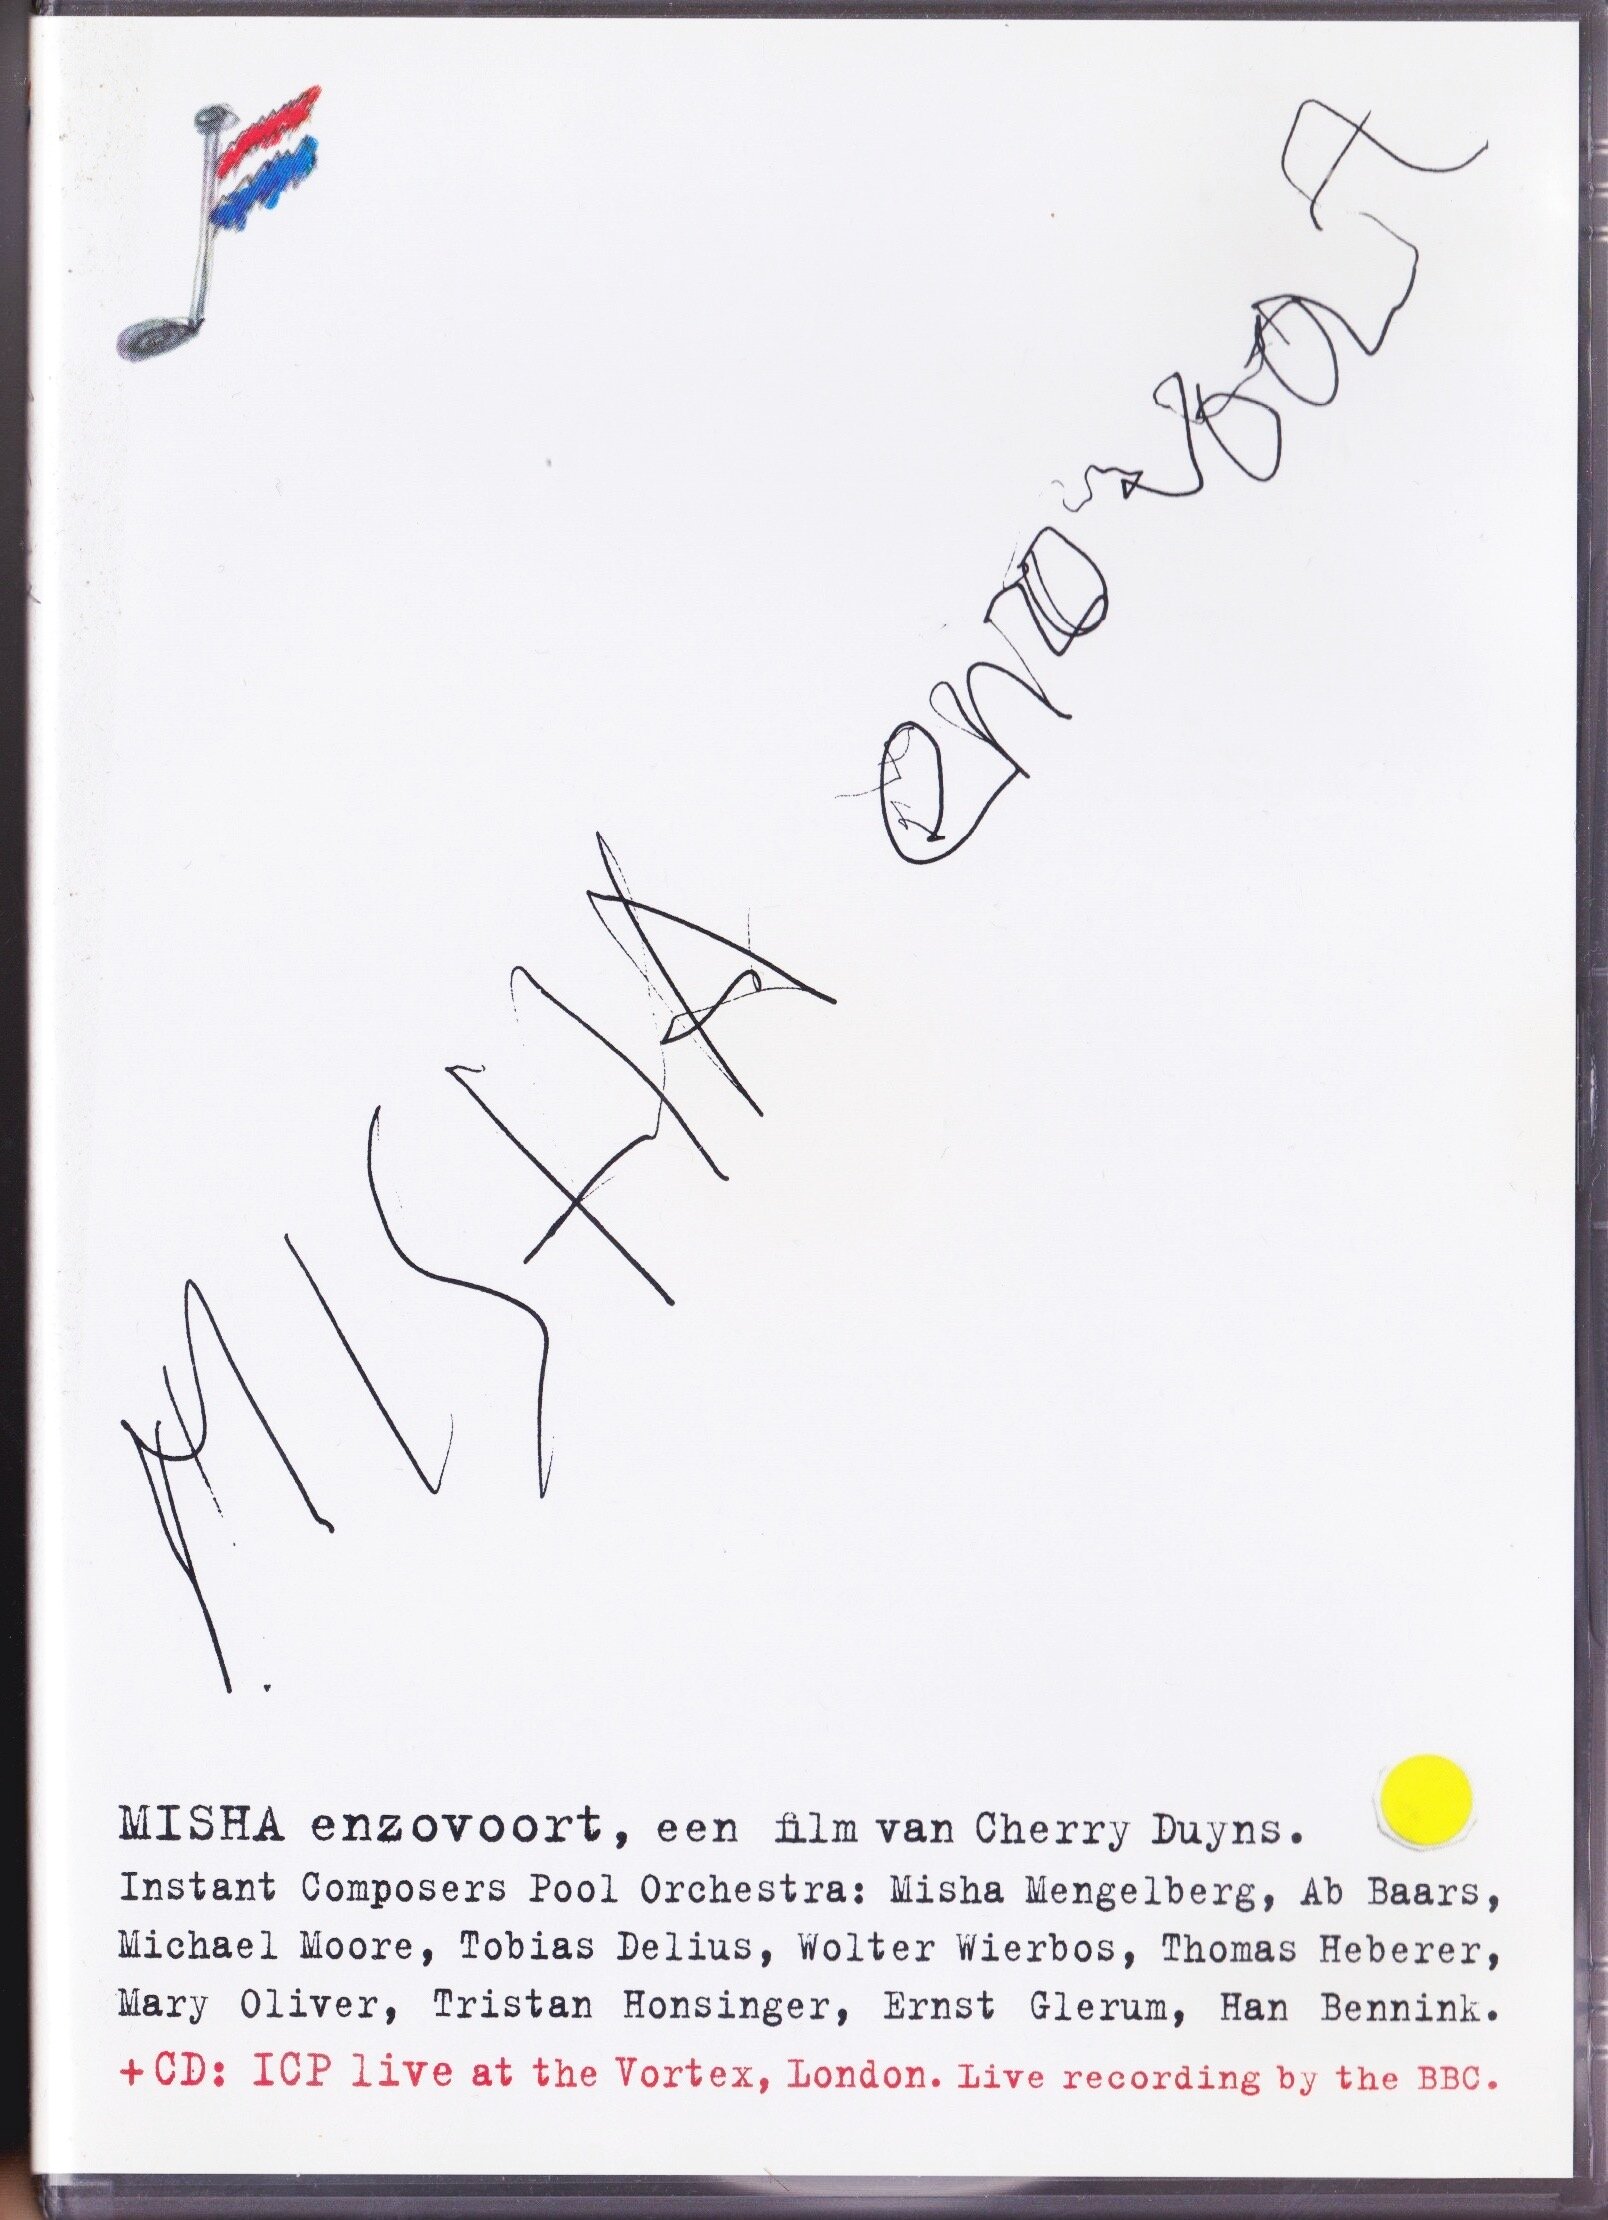 MISHA enzovoort
MISHA enzovoort, een film van Cherry Duyns.
Instant Composers Pool Orchestra: Misha Mengelberg, Ab Baars,
Michael Moore, Tobias Delius, Wolter Wierbos, Thomas Heberer,
Mary Oliver, Tristan Honsinger, Ernst Glerum, Han Bennink.
+CD: ICP live at the Vortex, London. Live recording by the BBC.